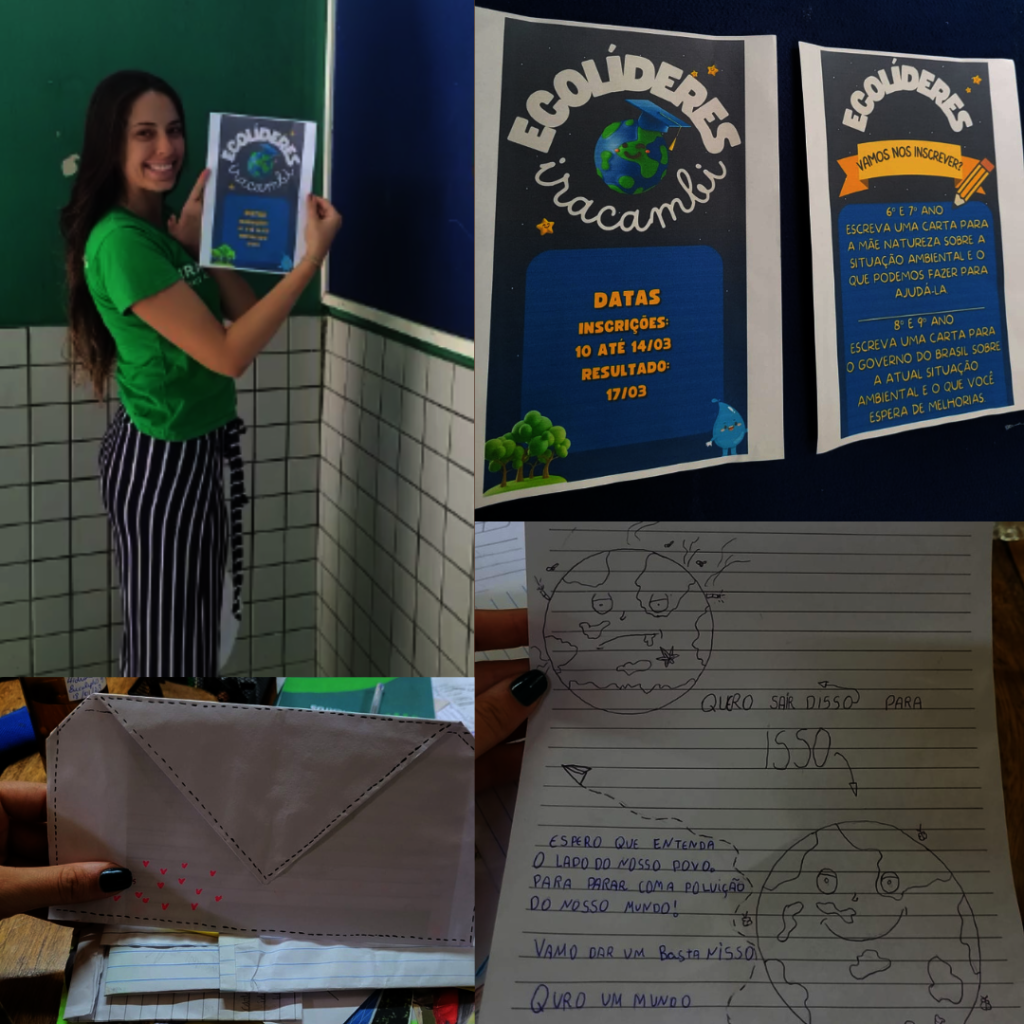 ECOLÍDERES
iracambi
ECOLÍDERES
iracambi
DATAS
INSCRIÇÕES:
10 ATÉ 14/03
RESULTADO:
17/03
ECOLÍDERES
VAMOS NOS INSCREVER?
6º E 7º ANO
ESCREVA UMA CARTA PARA
A MÃE NATUREZA SOBRE A
SITUAÇÃO AMBIENTAL E O
QUE PODEMOS FAZER PARA
AJUDÁ-LA
8º E 9º ANO
ESCREVA UMA CARTA PARA
O GOVERNO DO BRASIL SOBRE
A ATUAL SITUAÇÃO
AMBIENTAL E O QUE VOCÊ
ESPERA DE MELHORIAS.
QUERO SAIR DISSO PARA
ISSO
ESPERO QUE ENTENDA
O LADO DO NOSSO POVO.
PARA PARAR COM A POLUIÇÃO
DO NOSSO MUNDO!
VAMO DAR UM BASTA NISSO
QURO UM MUNDO